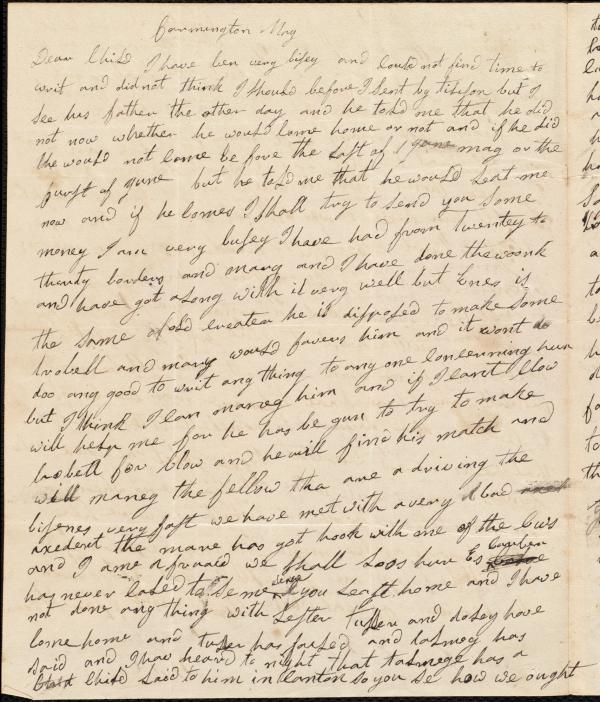 Carmington May
Dear Child I have ben very bisey and Could not find time to
writ and did not think I should before I sent by tilison but I
See his father the other day and he told me that he did
not now whether he would Come home or not and if he did
the would not Come be fore the last of may or the
furst of June but he told me that he would leat me
now and if he Comes I shall try to send you some
money I am very bisey I have had from twentey to
thurty borders and mary and I have done the woork
and have got a long with it very well but Enes is
the same old creater he is disposed to make some
trobell and mary would favers him and it wont
doo any good to writ any thing to any one Concerning hur
but I think I Can maneg him and if I Cant Clow
will help me for he has be gun to try to make
trobell for Clow and he will find his match and
will maneg the fellow tha are a driving the
bisenes very fast we have met with a very bad
axedent the mare has got hook with me of the Cws
and I ame afraaid we shall Loos hur Es
hay never Caled to se me sence you leaft home and I have
not done any thing with Lester tuller and dosey have
Come home and tuller has faled and talmeg has
said and I hav heard to night that talmege has a
Child said to him in Canton so you se how we ought